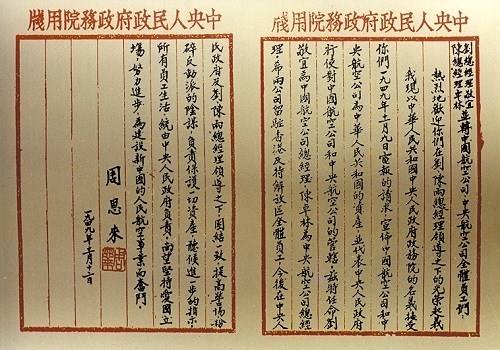 中央人民政府政務院用牋
劉總經理敬宜
陳總經理卓林
並轉中國航空公司、中央航空公司全體員工們：
熱烈地歡迎你們在劉、陳兩總經理領導之下的光榮起義
我現以中華人民共和國中央人民政府政務院的名義接受
你們一九四九年十一月九日電報的請求，宣佈中國航空公司和中
央航空公司為中華人民共和國的資產，並代表中央人民政府
行使對中國航空公司和中央航空公司的管轄，茲特任命劉
敬宜為中國航空公司總經理，陳卓林為中央航空公司總經
理，希兩公司留駐香港及待解放區全體員工，今後在中央人
中央人民政府政務院用牋
民政府及劉陳兩總經理領導之下，團結一致，提高警惕，粉
碎反動派的陰謀，負責保護一切資產，聽候進一步的指示，
所有員工生活，統由中央人民政府負責，尚望堅持愛國立
場，努力進步，為建設新中國的人民航空事業而奮鬥。
周恩來
一九四九年十一月十二日